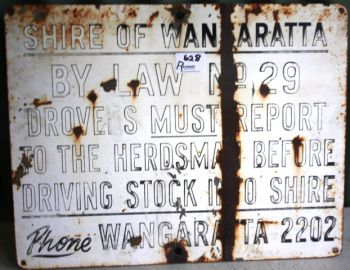 SHIRE OF WANGARATTA
628
BY LAW No 29
DROVERS MUST REPORT
TO THE HERDSMAN BEFORE
DRIVING STOCK INTO SHIRE
Phone WANGARATTA 2202